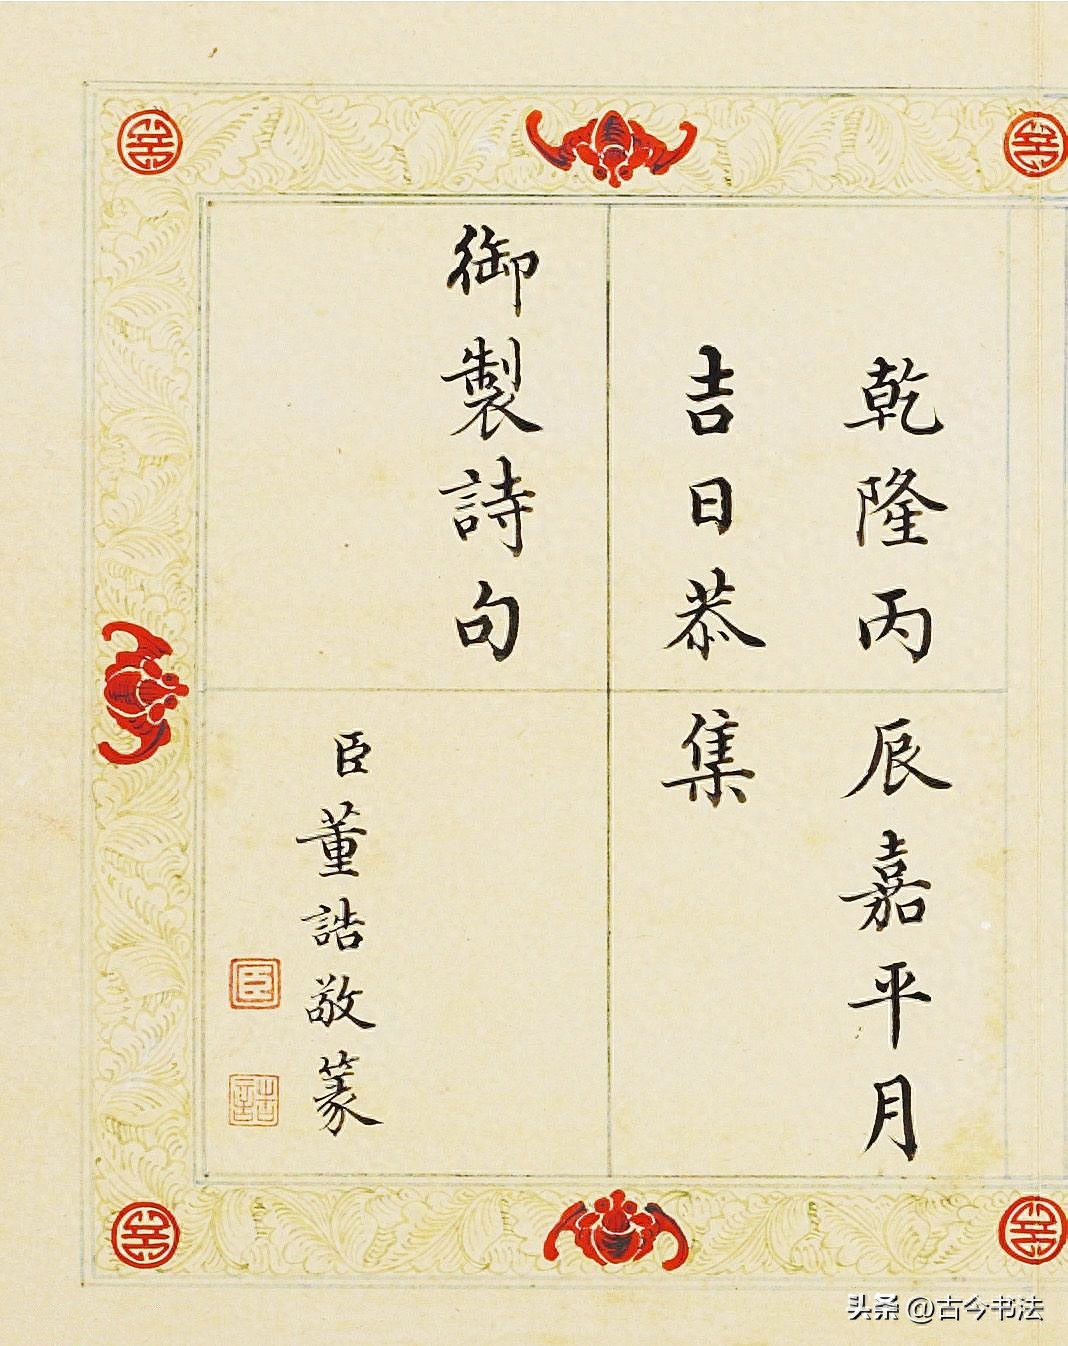 乾隆丙辰嘉平月
吉日恭集
御製詩句
臣董誥敬篆
臣
誥
头条 @古今书法